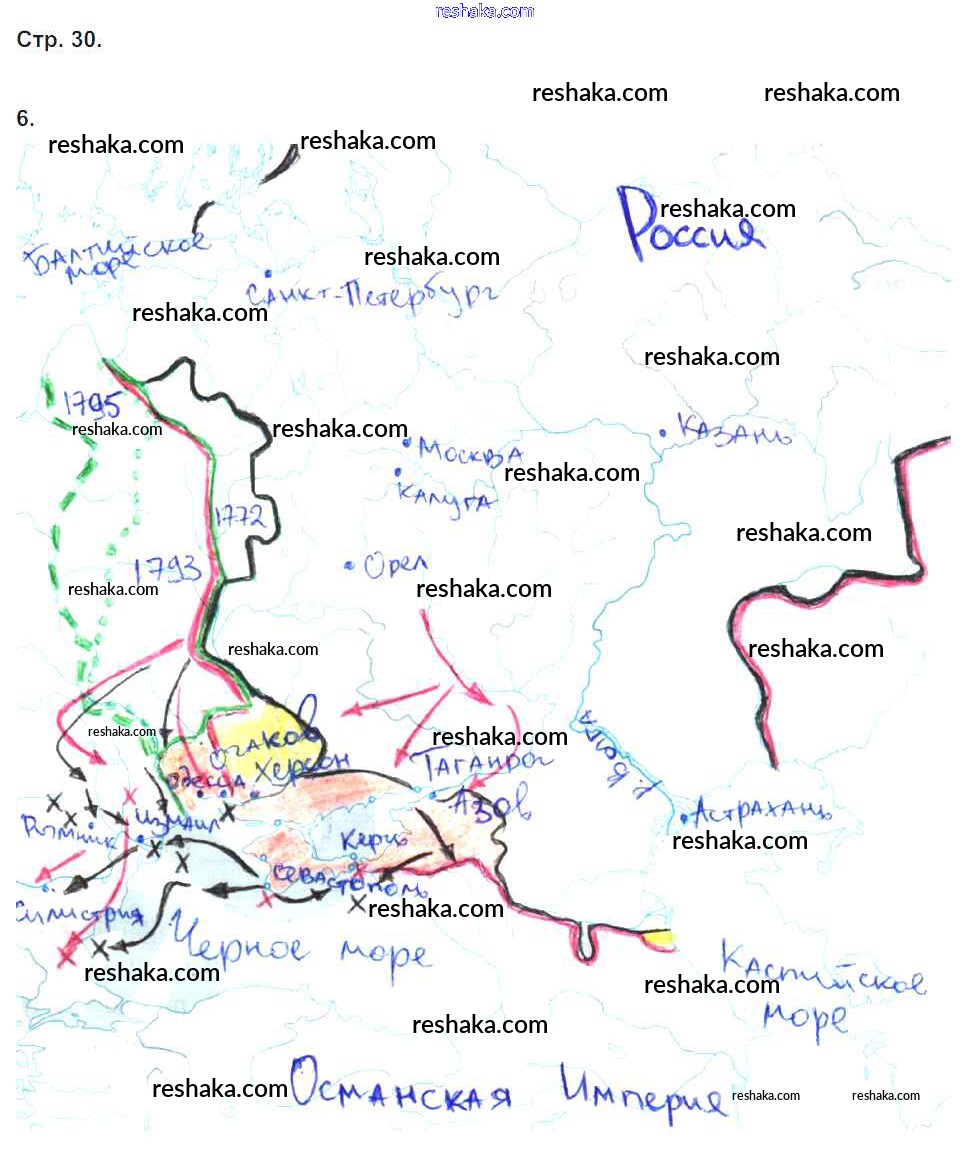 reshaka.com
Стр. 30.
reshaka.com reshaka.com
6.
reshaka.com reshaka.com
reshaka.com
Россия
Балтийское
море
reshaka.com
Санкт-Петербург
reshaka.com
reshaka.com
1795
reshaka.com reshaka.com
Казань
Москва
reshaka.com
Калуга
1772
reshaka.com
1793
Орел
reshaka.com reshaka.com
reshaka.com reshaka.com
reshaka.com
Очаков
reshaka.com
р. Волга
Одесса Херсон
Таганрог
Азов
Измаил
Рымник
Керчь
Астрахань
reshaka.com
Севастополь
Силистрия
reshaka.com
Черное море
reshaka.com
Каспийское
море
reshaka.com
reshaka.com
reshaka.com
Османская Империя
reshaka.com reshaka.com